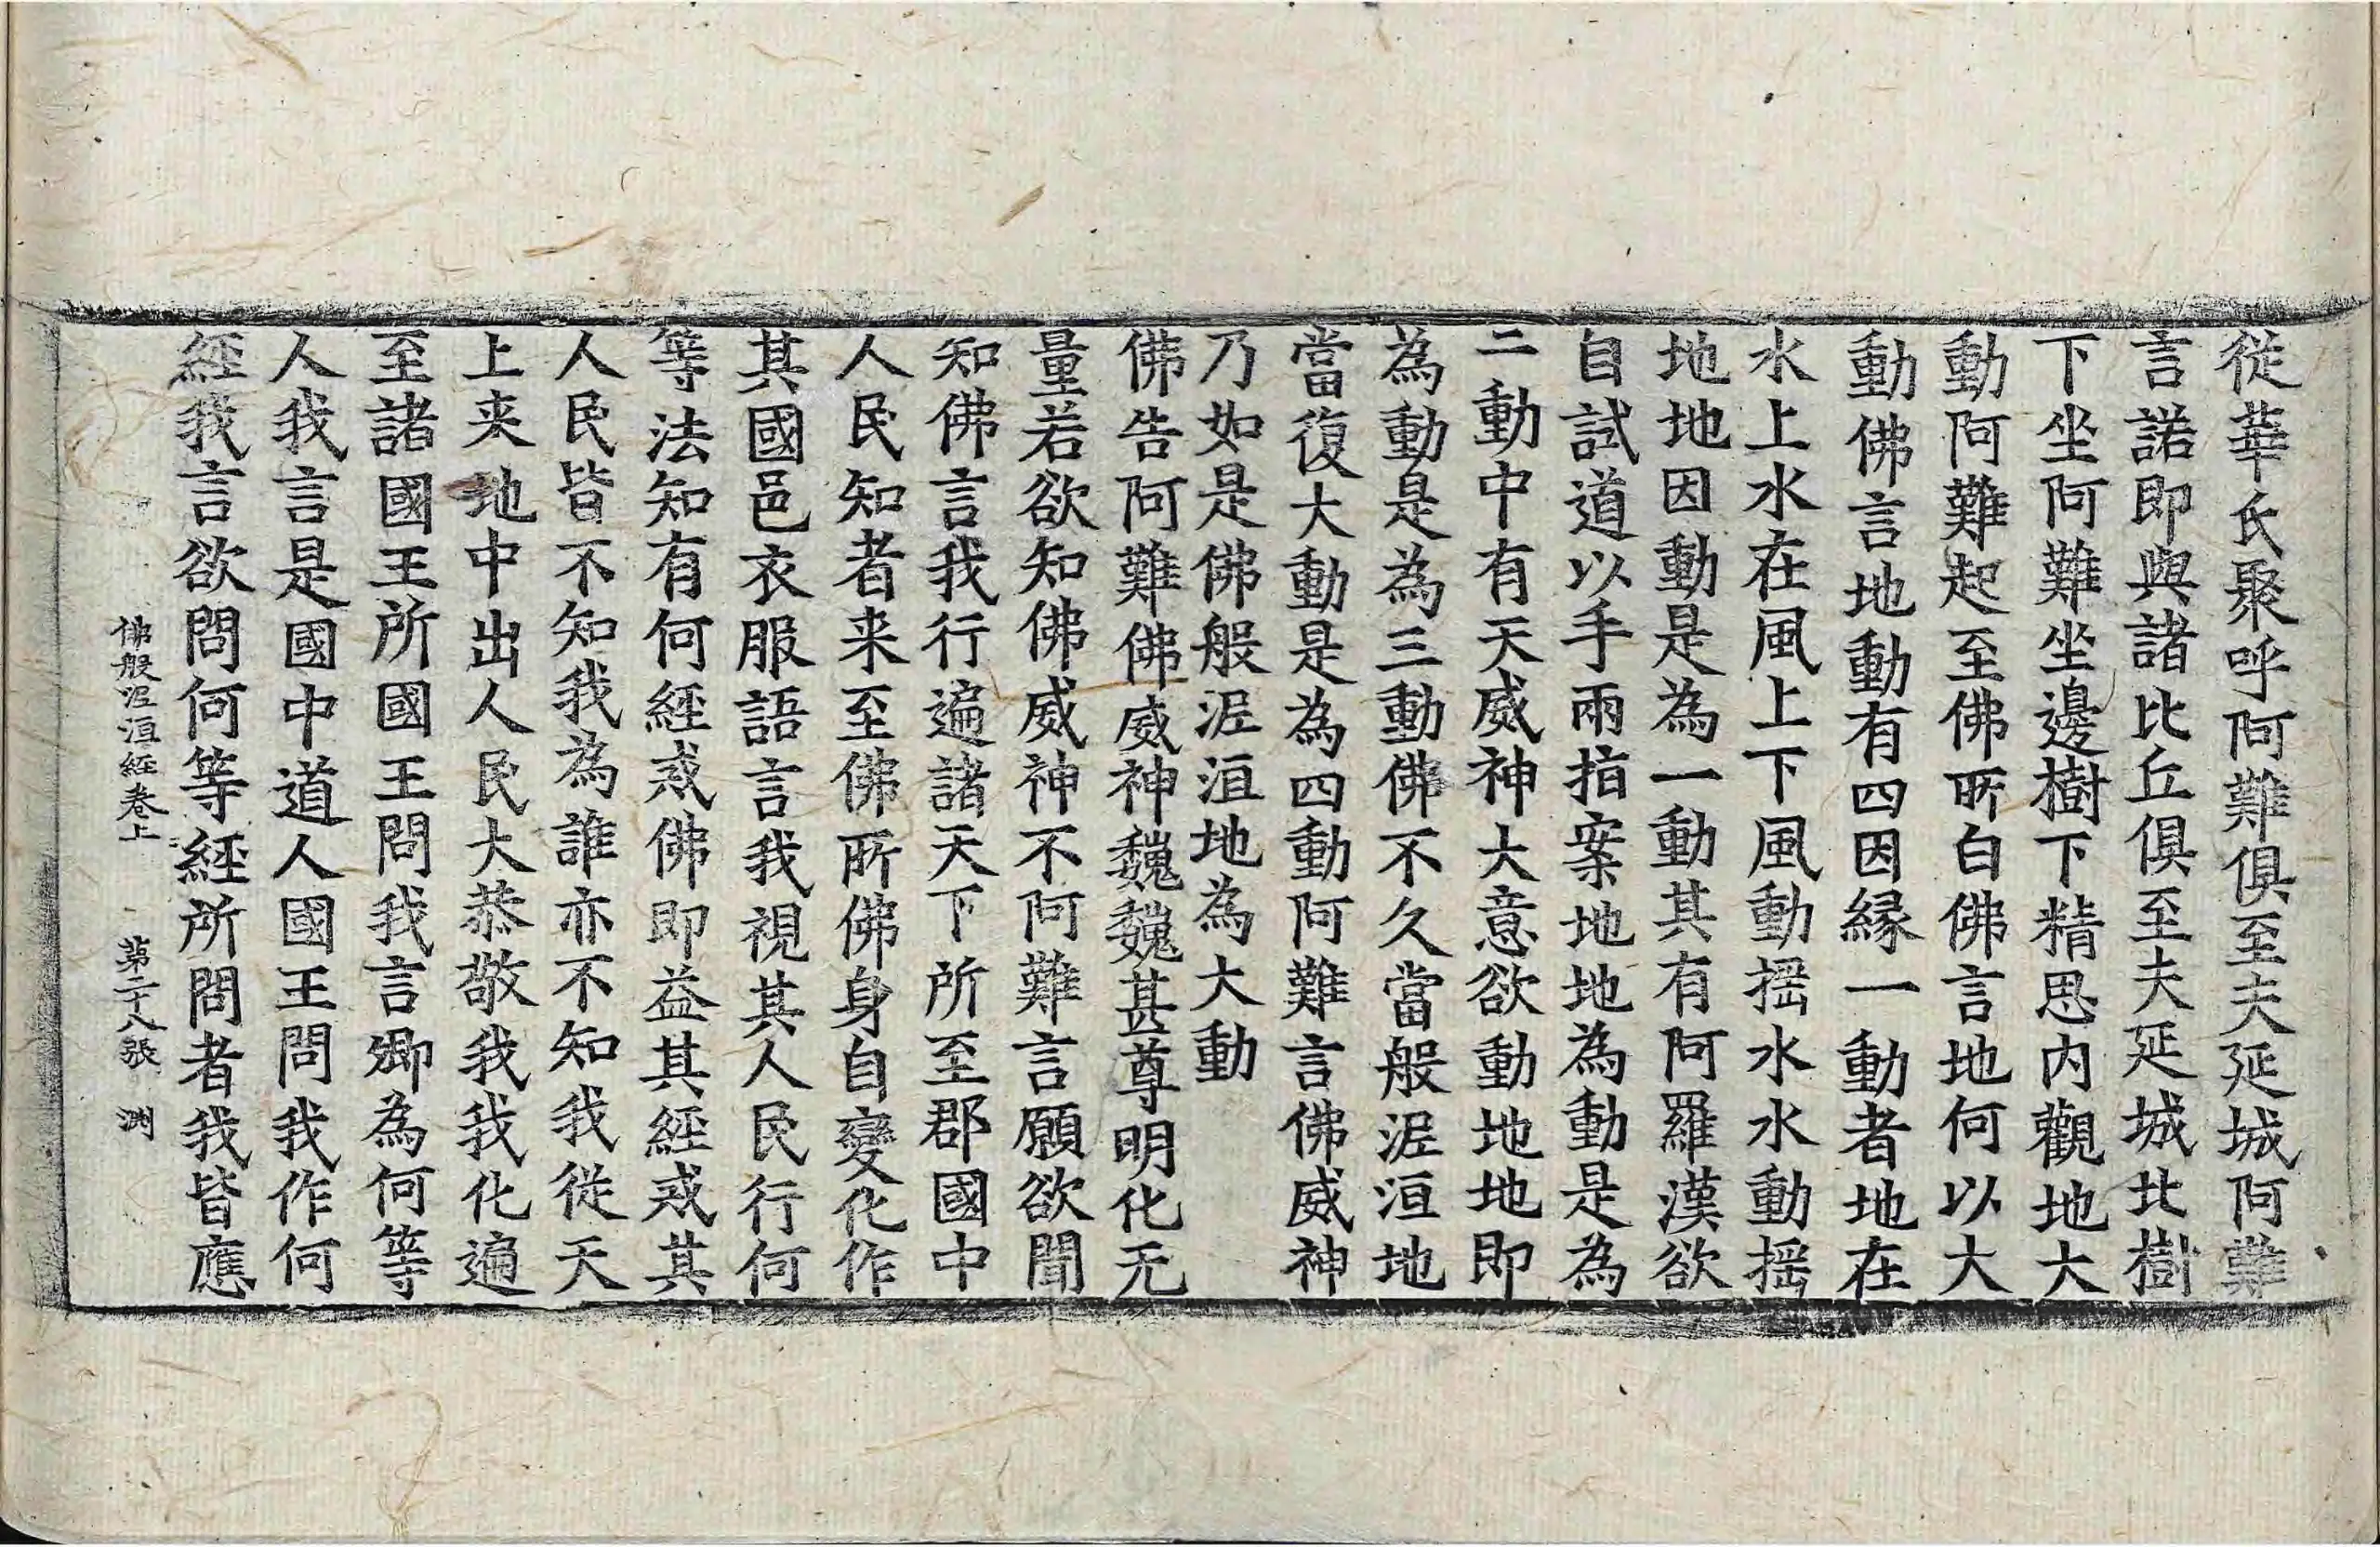 從華氏聚呼阿難俱至夫延城阿難
言諾即與諸比丘俱至夫延城北樹
下坐阿難坐邊樹下精思内觀地大
動阿難起至佛所白佛言地何以大
動佛言地動有四因縁一動者地在
水上水在風上下風動揺水水動揺
地地因動是為一動其有阿羅漢欲
自試道以手兩指案地地為動是為
二動中有天威神大意欲動地地即
為動是為三動佛不久當般泥洹地
當復大動是為四動阿難言佛威神
乃如是佛般泥洹地為大動
佛告阿難佛威神巍巍甚尊明化无
量若欲知佛威神不阿難言願欲聞
知佛言我行遍諸天下所至郡國中
人民知者来至佛所佛身自變化作
其國邑衣服語言我視其人民行何
等法知有何經戒佛即益其經戒其
人民皆不知我為誰亦不知我從天
上来地中出人民大恭敬我我化遍
至諸國王所國王問我言卿為何等
人我言是國中道人國王問我作何
經我言欲問何等經所問者我皆應
佛般泥洹經卷上 第二十八張 渕